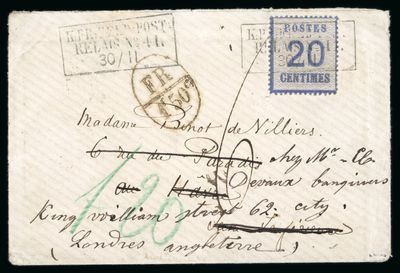 K.PR.FELD-POST-
RELAIS No 44.
30/11
K.PR.
RELAIS No
30/11
POSTES
20
CENTIMES
FR
1 50c
Madame Binot de Villiers.
6 rue de Paradis chez Mr
au Devaux banquiers
King william street 62. city.
(Londres angleterre)
1.20